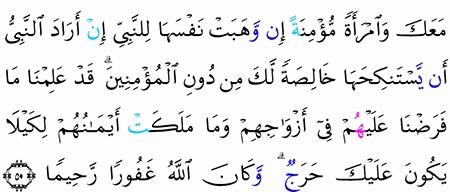 مَعَكَ وَٱمْرَأَةً مُّؤْمِنَةً إِن وَّهَبَتْ نَفْسَهَا لِلنَّبِىِّ إِنْ أَرَادَ ٱلنَّبِىُّ
أَن يَّسْتَنكِحَهَا خَالِصَةً لَّكَ مِن دُونِ ٱلْمُؤْمِنِينَ ۗ قَدْ عَلِمْنَا مَا
فَرَضْنَا عَلَيْهِمْ فِىٓ أَزْوَٰجِهِمْ وَمَا مَلَكَتْ أَيْمَٰنُهُمْ لِكَيْلَا
يَكُونَ عَلَيْكَ حَرَجٌ ۗ وَّكَانَ ٱللَّهُ غَفُورًا رَّحِيمًا ٥٠